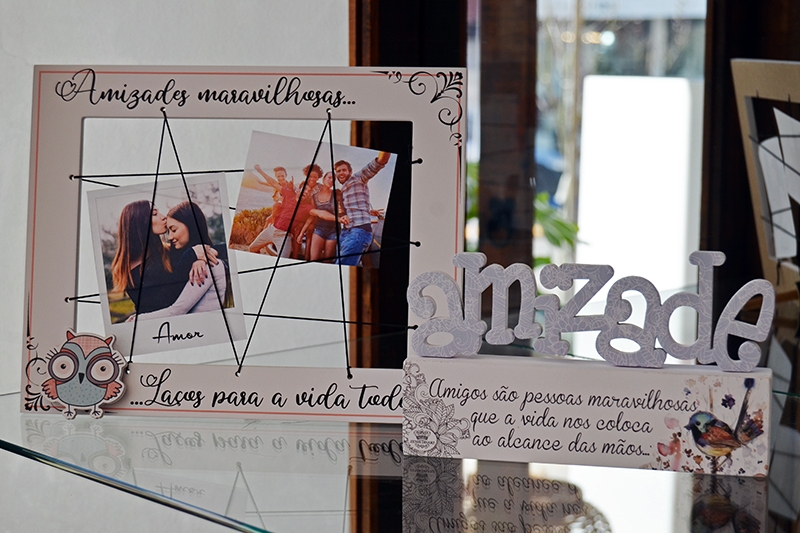 Amizades maravilhosas...
Amor
...Laços para a vida toda
amizade
Amigos são pessoas maravilhosas
que a vida nos coloca
ao alcance das mãos...